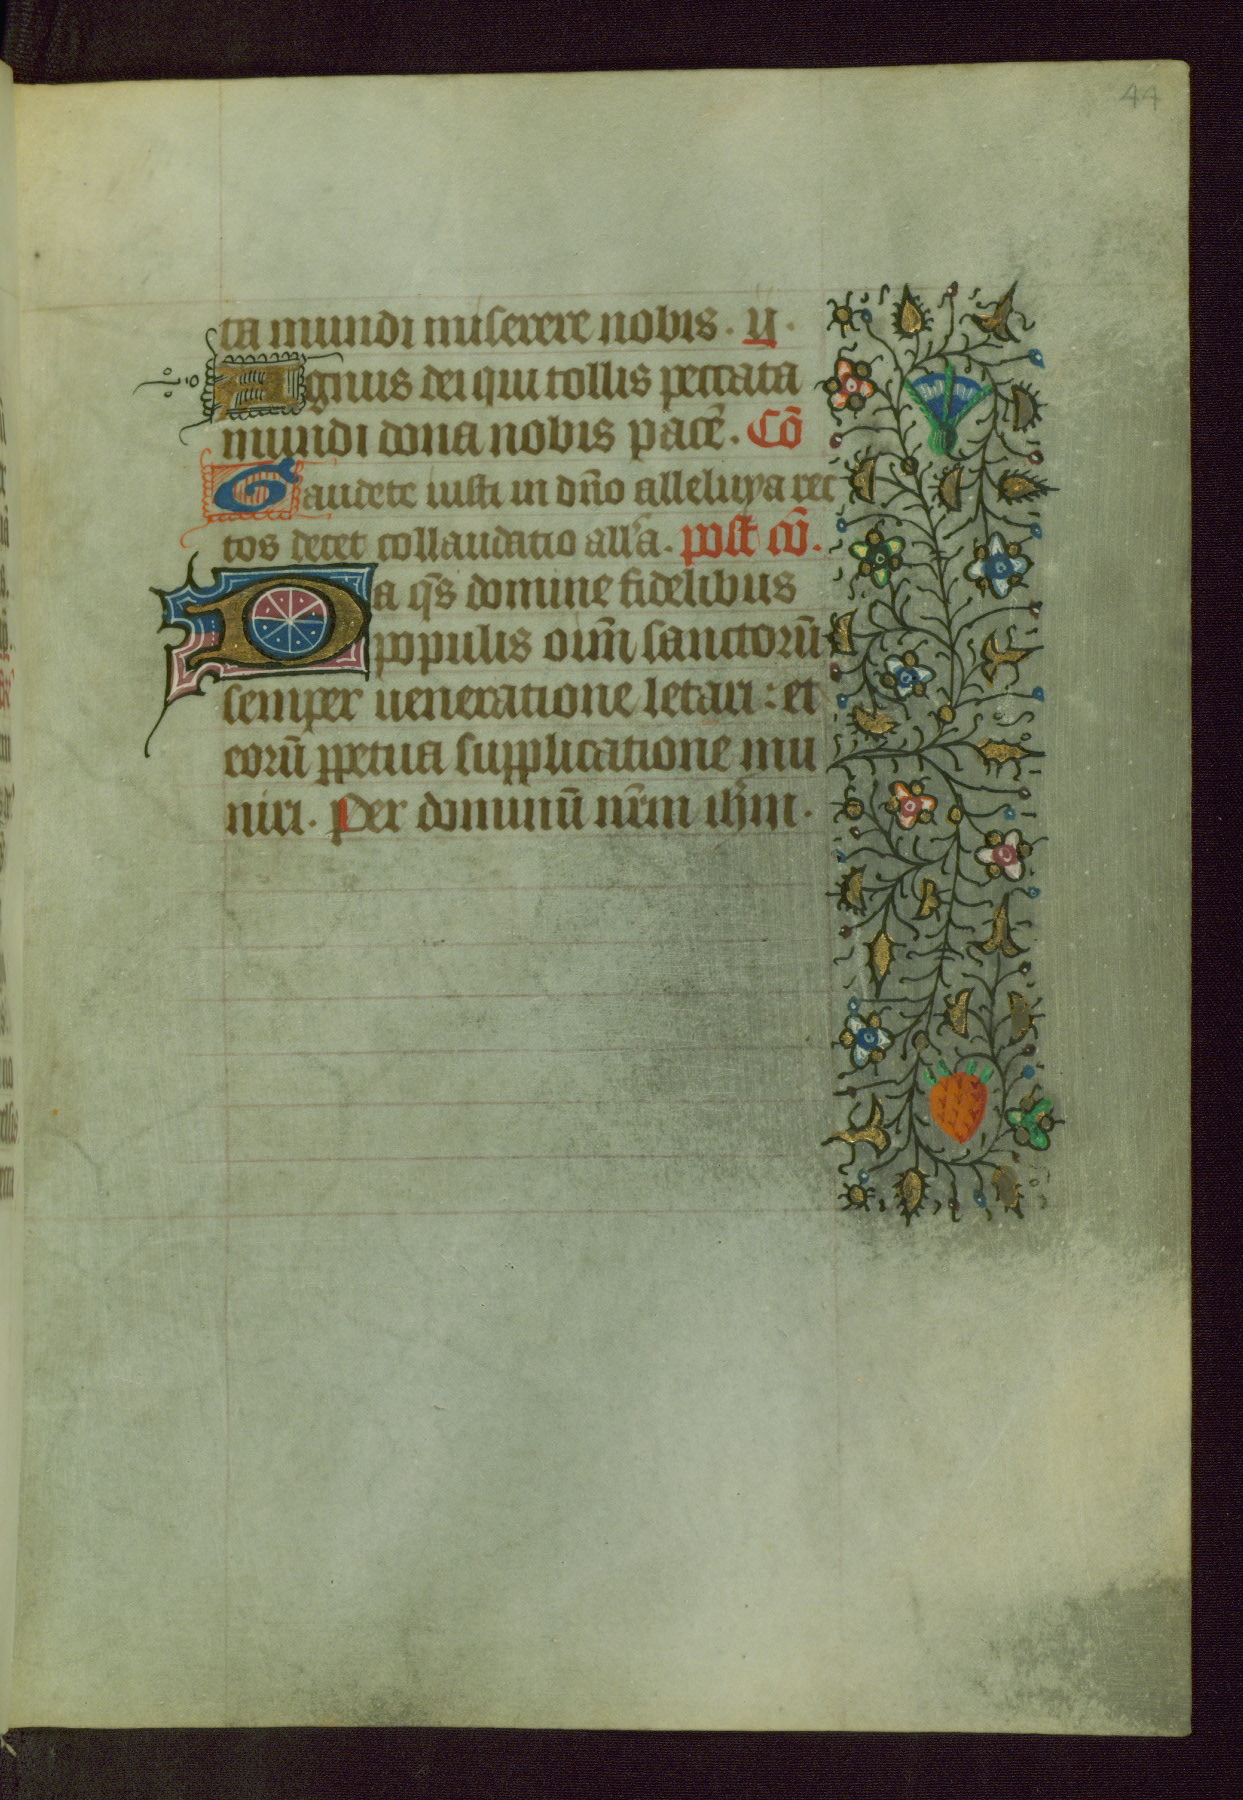 44
ta mundi miserere nobis. ij.
Agnus dei qui tollis peccata
mundi dona nobis pacē. Cō
Gaudete iusti in dn̄o alleluya rec
tos decet collaudatio all'a. post cō.
Da q̄s domine fidelibus
populis oīm sanctorū
semper ueneratione letari: et
eorū ꝑpetua supplicatione mu
niri. Per dominū nr̄m ih̄m.